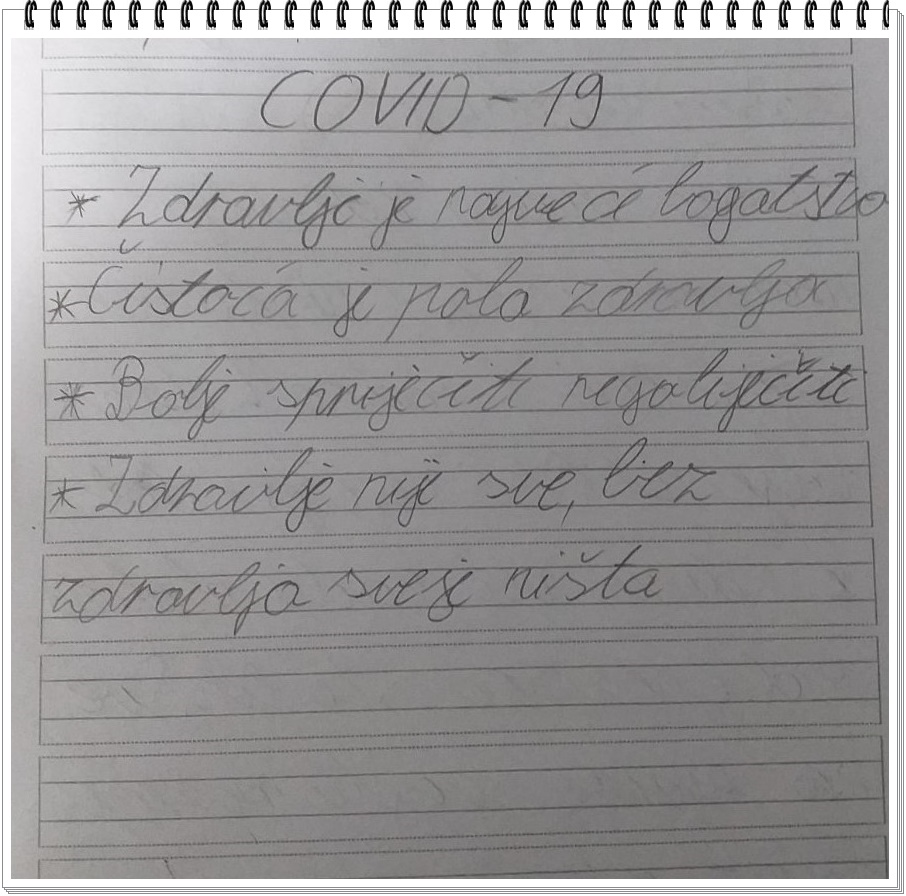 COVID-19
* Zdravlje je najveće bogatstvo
* Čistoća je pola zdravlja
* Bolje spriječiti negoliječiti
* Zdravlje nije sve, bez
zdravlja sveje ništa